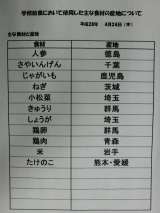 学校給食において使用した主な食材の産地について
平成28年 4月24日（木）
主な食材と産地
食材 産地
人参 徳島
さやいんげん 千葉
じゃがいも 鹿児島
ねぎ 茨城
小松菜 埼玉
きゅうり 群馬
しょうが 埼玉
鶏卵 群馬
鶏肉 青森
米 岩手
たけのこ 熊本・愛媛